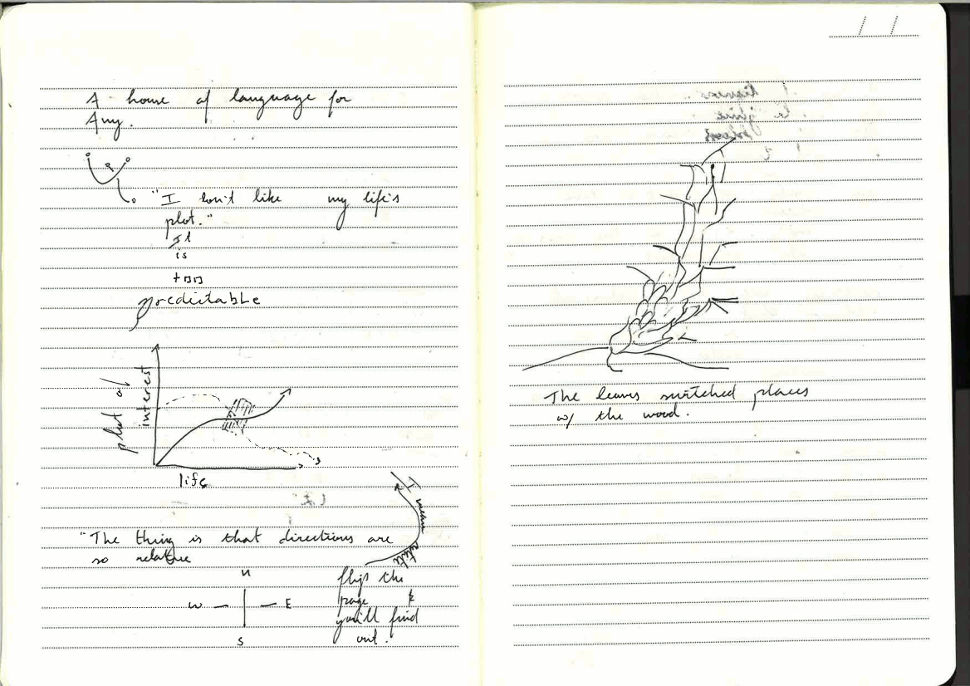 A home of language for
Amy.
"I don't like my life's
plot."
It
is
too
predictable
plot of
interest
life
"The thing is that directions are
so relative
N
W E
S
I mean
flip the
page &
you'll find
out.
The leaves switched places
w/ the wood.